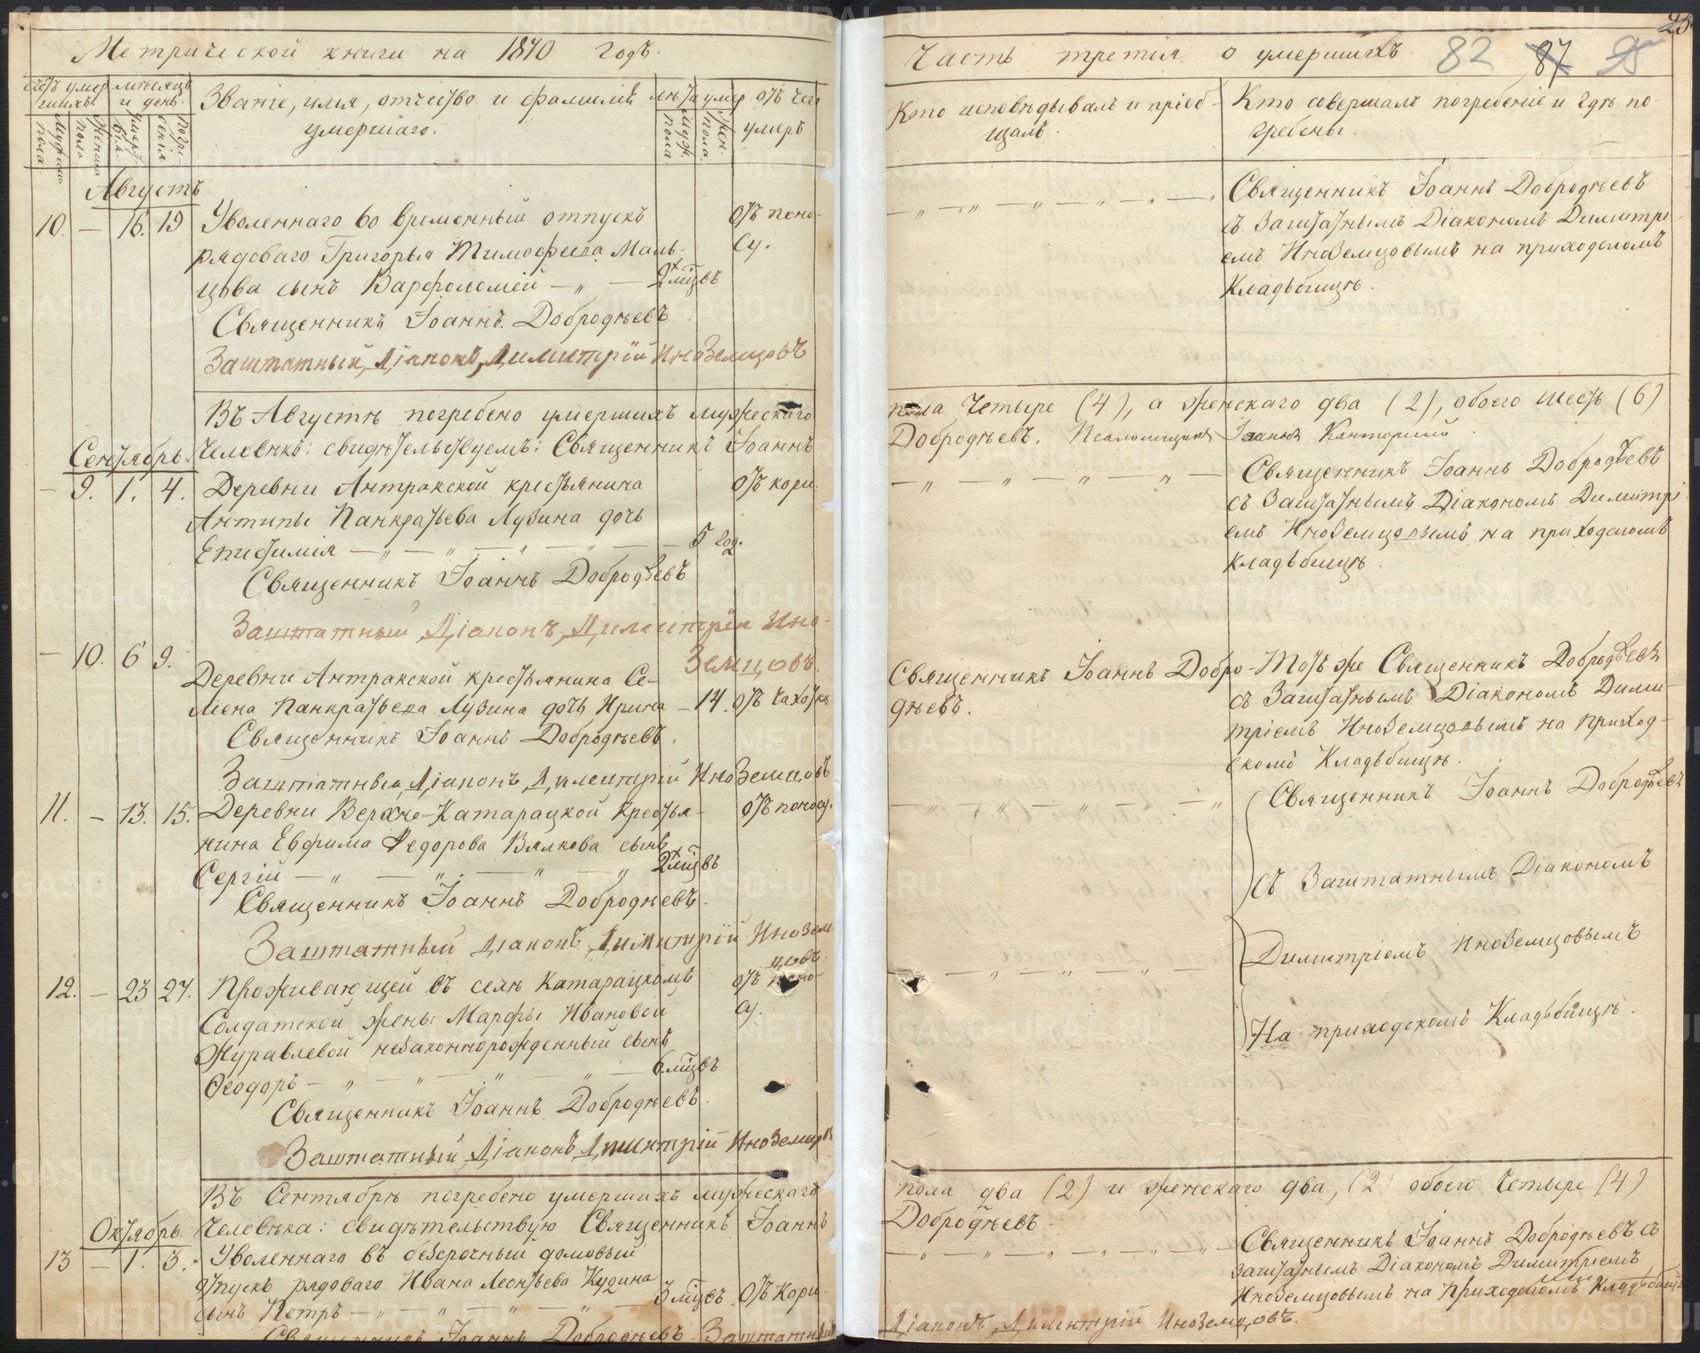 Метрической книги на 1870 годъ.
Счетъ умер- мѣсяцъ
шихъ. и день.
Званіе, имя, отчество и фамилія
умершаго.
лѣта умер.
отъ чего
умеръ.
Мужеска
пола
Женска
пола
Смер
ти.
Погре
бенія
Муж.
пола
Жен.
пола.
Августъ
10. — 16. 19 Уволеннаго во временный отпускъ
отъ поно-
су.
рядоваго Григорья Тимофеева Маль-
цова сынъ Варфоломей — „ — 2 мцвъ
Священникъ Іоаннъ Добродѣевъ
Заштатный Діаконъ Димитрій Иноземцовъ
Въ Августѣ погребено умершихъ мужескаго
Человѣкъ: свидѣтельствуемъ: Священникъ Іоаннъ
Сентябрь.
— 9. 1. 4. Деревни Антракской крестьянина
отъ кори.
Антипы Панкратьева Лузина дочь
Епифимія — „ — „ — „ — „ — 5 год.
Священникъ Іоаннъ Добродѣевъ
Заштатный Діаконъ Димитрій Ино-
земцовъ.
— 10. 6 9.
Деревни Антракской крестьянина Се-
мена Панкратьева Лузина дочь Ирина — 14. отъ чахотки
Священникъ Іоаннъ Добродѣевъ.
Заштатный Діаконъ Димитрій Иноземцовъ
11. — 13. 15. Деревни Верхне-Катарацкой крестья-
отъ поносу.
нина Евфима Ѳедорова Вялкова сынъ
Сергій — „ — „ — „ — „ 2 мцвъ
Священникъ Іоаннъ Добродѣевъ.
Заштатный Діаконъ Димитрій Инозем-
цовъ.
12. — 23 27. Проживающей въ селѣ Катарацкомъ
отъ поно-
су.
Солдатской жены Марфы Ивановой
Журавлевой незаконнорожденный сынъ
Ѳеодоръ — „ — „ — „ — „ — 6 мцвъ
Священникъ Іоаннъ Добродѣевъ.
Заштатный Діаконъ Димитрій Иноземцовъ
Въ Сентябрѣ погребено умершихъ мужескаго
Октябрь.
Человѣка: свидѣтельствую Священникъ Іоаннъ
13 — 1. 3. Уволеннаго въ безсрочный домовый
отпускъ рядоваго Ивана Леонтьева Кудина
сынъ Петръ — „ — „ — „ — 3 мцвъ. отъ Кори.
Священникъ Іоаннъ Добродѣевъ Заштатный
Часть третія о умершихъ.
82 87
Кто исповѣдывалъ и пріоб-
щалъ.
Кто совершалъ погребеніе и гдѣ по-
гребены.
Священникъ Іоаннъ Добродѣевъ
съ Заштатнымъ Діакономъ Димитрі-
емъ Иноземцовымъ на приходскомъ
Кладьбищѣ.
пола Четыре (4), а женскаго два (2), обоего шесть (6)
Добродѣевъ. Псаломщикъ Іоаннъ Канторский
Священникъ Іоаннъ Добродѣевъ
съ Заштатнымъ Діакономъ Димитрі-
емъ Иноземцовымъ на приходскомъ
кладьбищѣ.
Священникъ Іоаннъ Добро-
дѣевъ.
Тотъ же Священникъ Добродѣевъ
съ Заштатнымъ Діакономъ Дими-
тріемъ Иноземцовымъ на приход-
скомъ Кладьбищѣ.
Священникъ Іоаннъ Добродѣевъ
съ Заштатнымъ Діакономъ
Димитріемъ Иноземцовымъ
На приходскомъ Кладьбищѣ.
пола два (2) и женскаго два, (2) обоего Четыре (4)
Добродѣевъ
Священникъ Іоаннъ Добродѣевъ съ
Заштатнымъ Діакономъ Димитріемъ
Иноземцовымъ на Приходскомъ Кладьбищѣ
Діаконъ Димитрій Иноземцовъ.